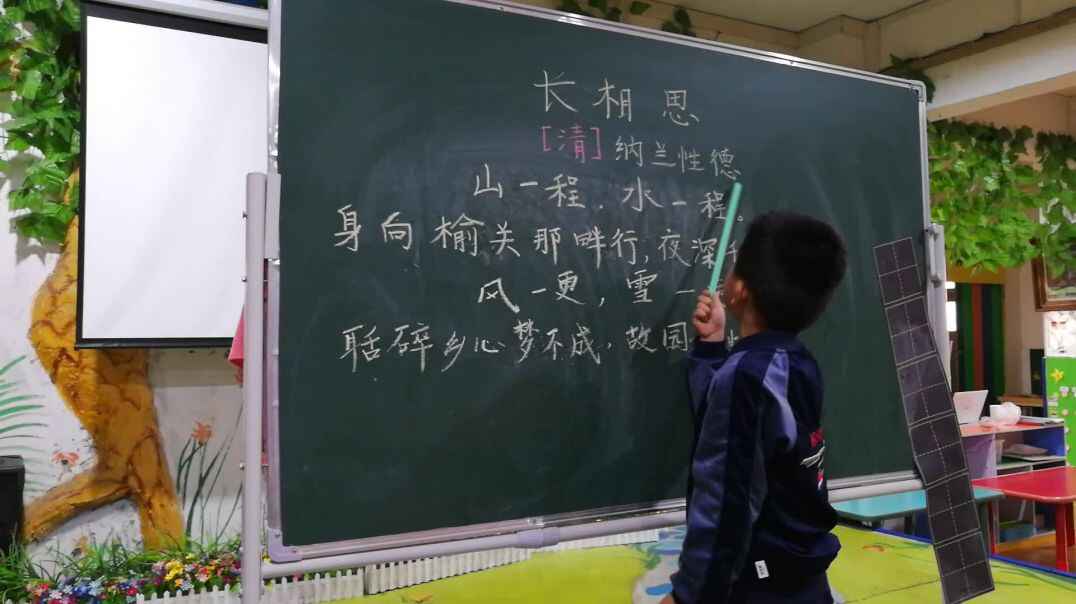 长相思
[清]纳兰性德
山一程,水一程。
身向榆关那畔行,夜深
风一更,雪一
聒碎乡心梦不成,故园